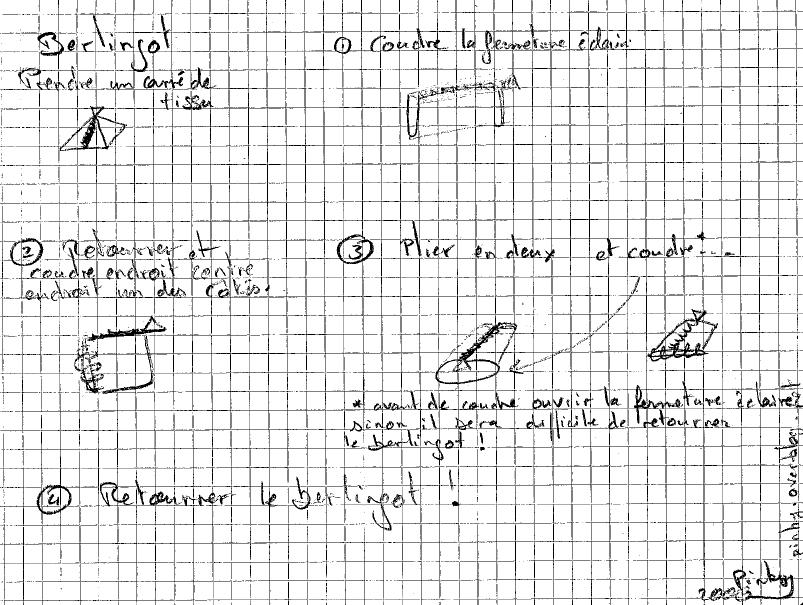 Berlingot
Prendre un carré de
tissu
① Coudre la fermeture éclair
② Retourner et
coudre endroit contre
endroit un des côtés.
③ Plier en deux et coudre*...
* avant de coudre ouvrir la fermeture éclaire
sinon il sera difficile de retourner
le berlingot !
④ Retourner le berlingot !
pinky.over-blog.net
Pinky